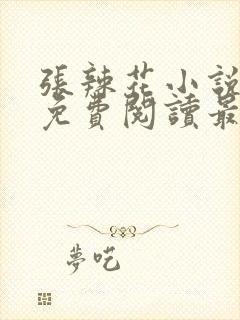 張辣花小說
免費閱讀最
夢吃